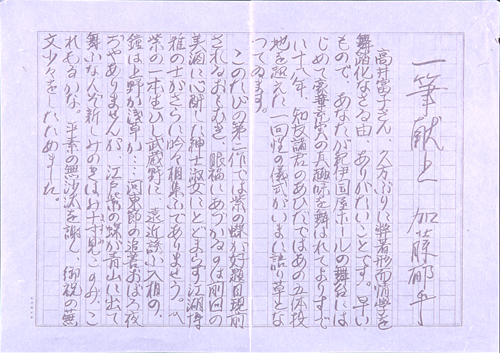 一筆献上 加藤郁乎
高井富子さん、久方ぶりに弊著形而情學を
舞踏化なさる由、ありがたいことです。早い
もので、あなたが紀伊国屋ホールの舞台には
じめて豪華
を舞われてよりすで
に十八年、知友諸君のあひだではあの五体投
地を超えた一回性の儀式がいまに語り草とな
つてゐます。
このたびの第二作では紫の蝶が好題目現前
されるおもむき、眼福にあづかるのは前回の
美酒に心酔した紳士淑女にとどまらず江湖博
雅の士がさらに吟々相集ふでありませう。〽
紫の一本ゆひし武蔵野に、遠近誘ふ入相の、
鐘は上野か浅草か……河東節の追善おぼろ夜
ではありませんが、江戸紫の蝶が青山に出て
舞ふなんぞ新しみのきはみ
、こ
れもなかな。平素の無沙汰を謝し、御祝の蕪
文少々をしたためました。